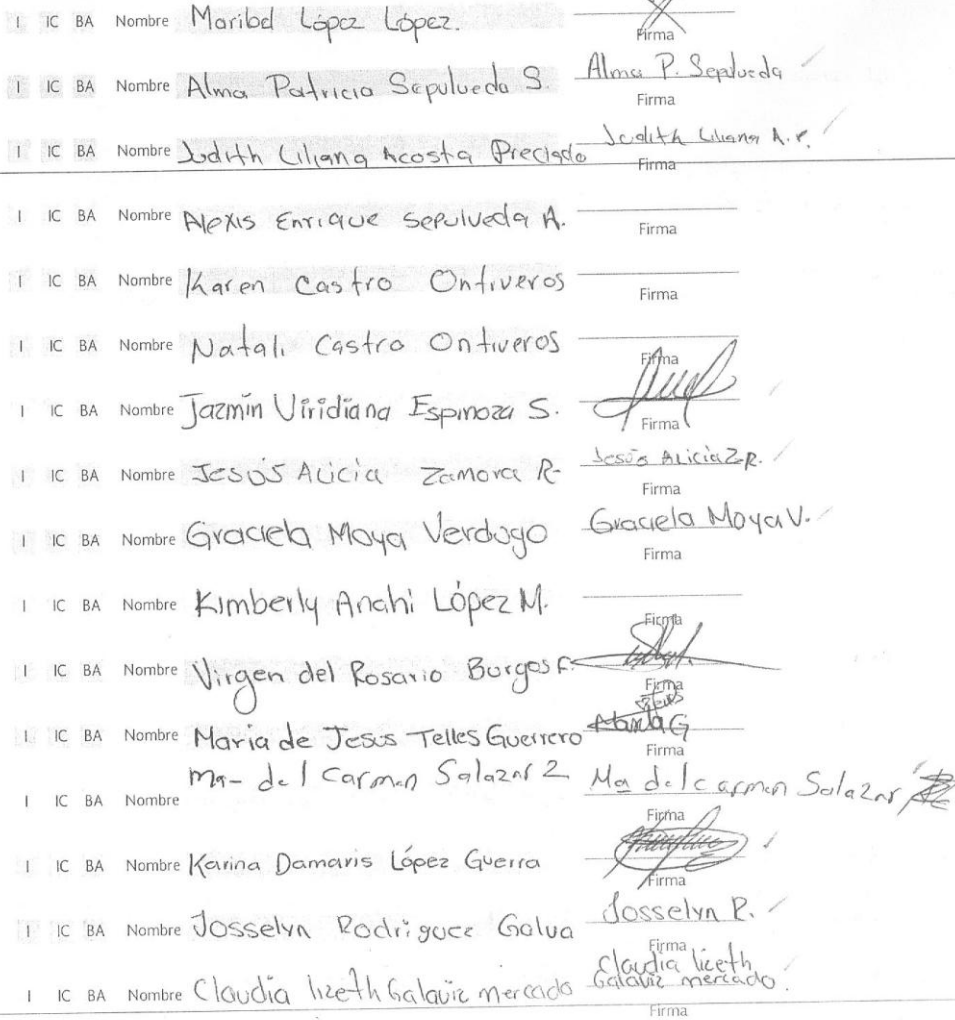 I IC BA Nombre Maribel López López.
Firma
I IC BA Nombre Alma Patricia Sepulveda S. Alma P. Sepulveda
Firma
I IC BA Nombre Judith Liliana Acosta Preciado Judith Liliana A. P.
Firma
I IC BA Nombre Alexis Enrique Sepulveda A.
Firma
I IC BA Nombre Karen Castro Ontiveros
Firma
I IC BA Nombre Natali Castro Ontiveros
Firma
I IC BA Nombre Jazmín Viridiana Espinoza S.
Firma
I IC BA Nombre Jesús Alicia Zamora R. Jesús Alicia Z.R.
Firma
I IC BA Nombre Graciela Moya Verdugo Graciela Moya V.
Firma
I IC BA Nombre Kimberly Anahi López M.
Firma
I IC BA Nombre Virgen del Rosario Burgos F.
Firma
I IC BA Nombre Maria de Jesus Telles Guerrero
Firma
I IC BA Nombre Ma- del Carmen Salazar Z Ma del carmen Salazar
Firma
I IC BA Nombre Karina Damaris López Guerra
Firma
I IC BA Nombre Josselyn Rodriguez Galva Josselyn R.
Firma
I IC BA Nombre Claudia lizeth Galaviz mercado Claudia lizeth
Galaviz mercado.
Firma